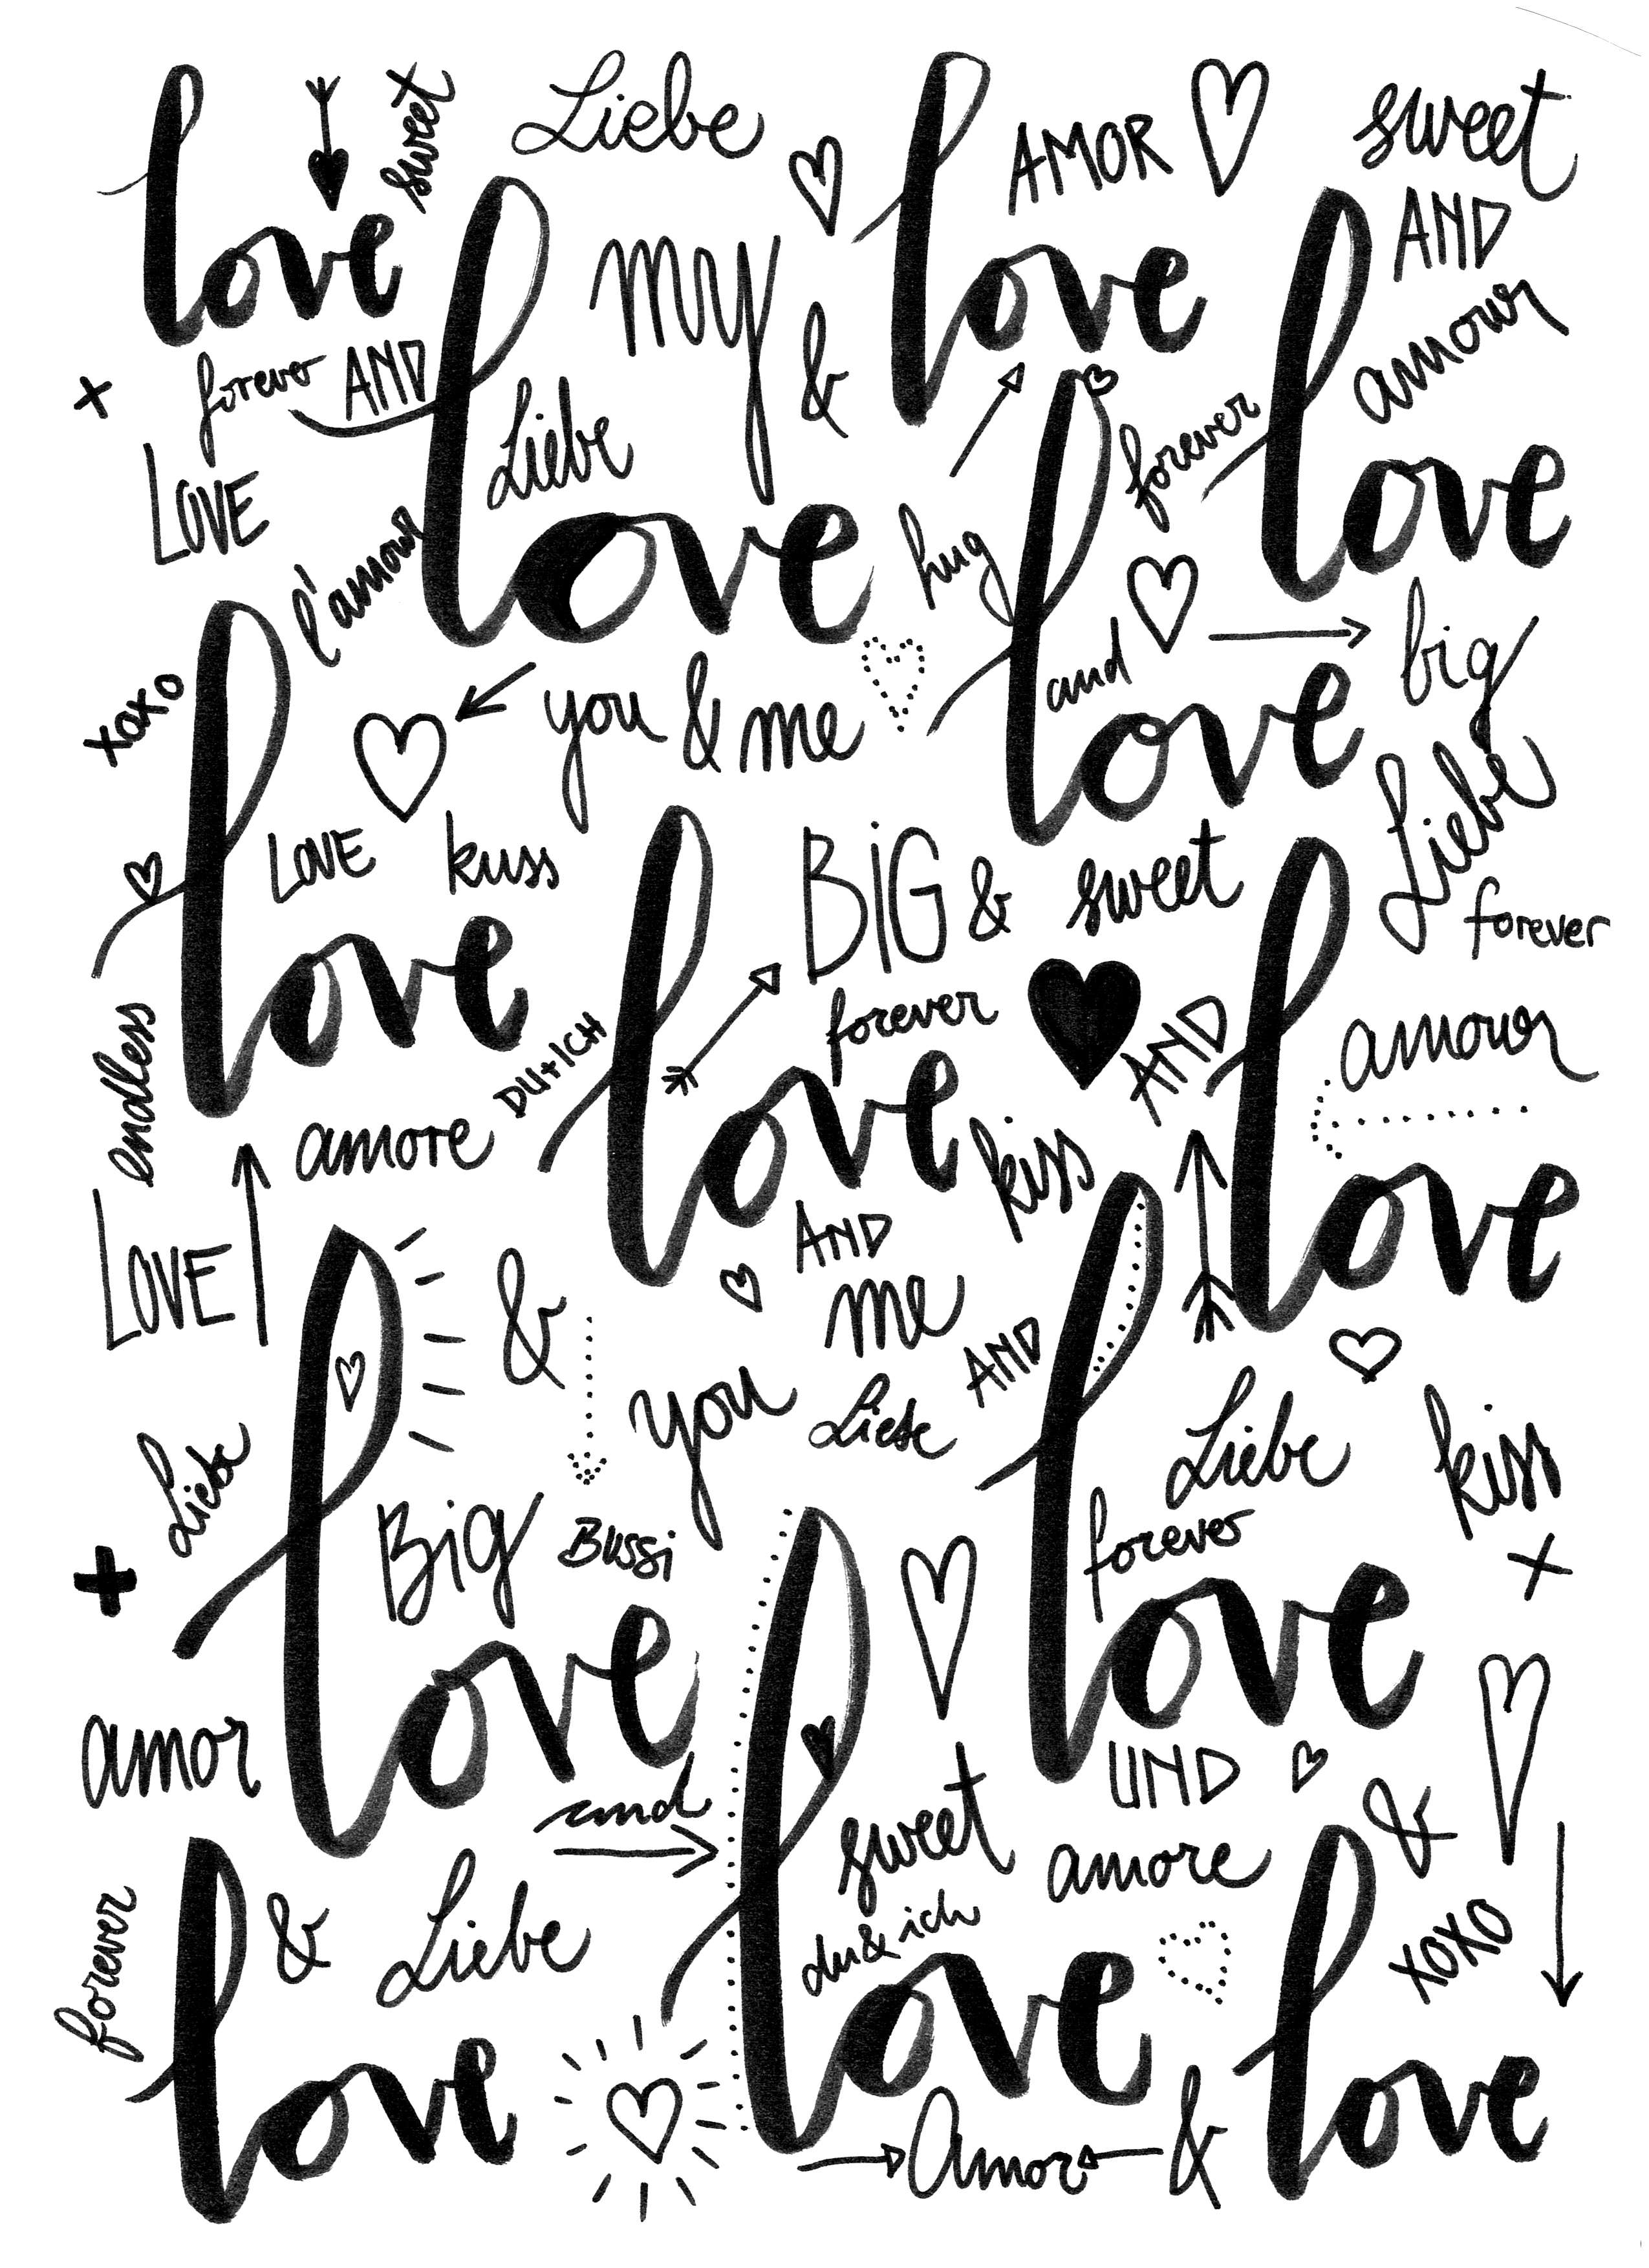 love
sweet
Liebe
love
AMOR
sweet
AND
my
&
love
amour
forever AND
Liebe
love
forever
LOVE
l'amour
hug
love
and
big
xoxo
you & me
love
Liebe
LOVE
kuss
BIG & sweet
love
forever
forever
AND
amour
endless
DU+ICH
love
amore
kiss
LOVE
AND
me
love
&
you
Liebe
AND
love
Liebe
kiss
Liebe
forever
Big
Bussi
love
amor
UND
and
sweet
&
amore
forever
& Liebe
du & ich
xoxo
love
love
love
Amor &